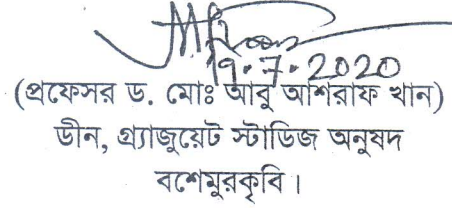 19.7.2020
(প্রফেসর ড. মোঃ আবু আশরাফ খান)
ডীন, গ্র্যাজুয়েট স্টাডিজ অনুষদ
বশেমুরকৃবি।